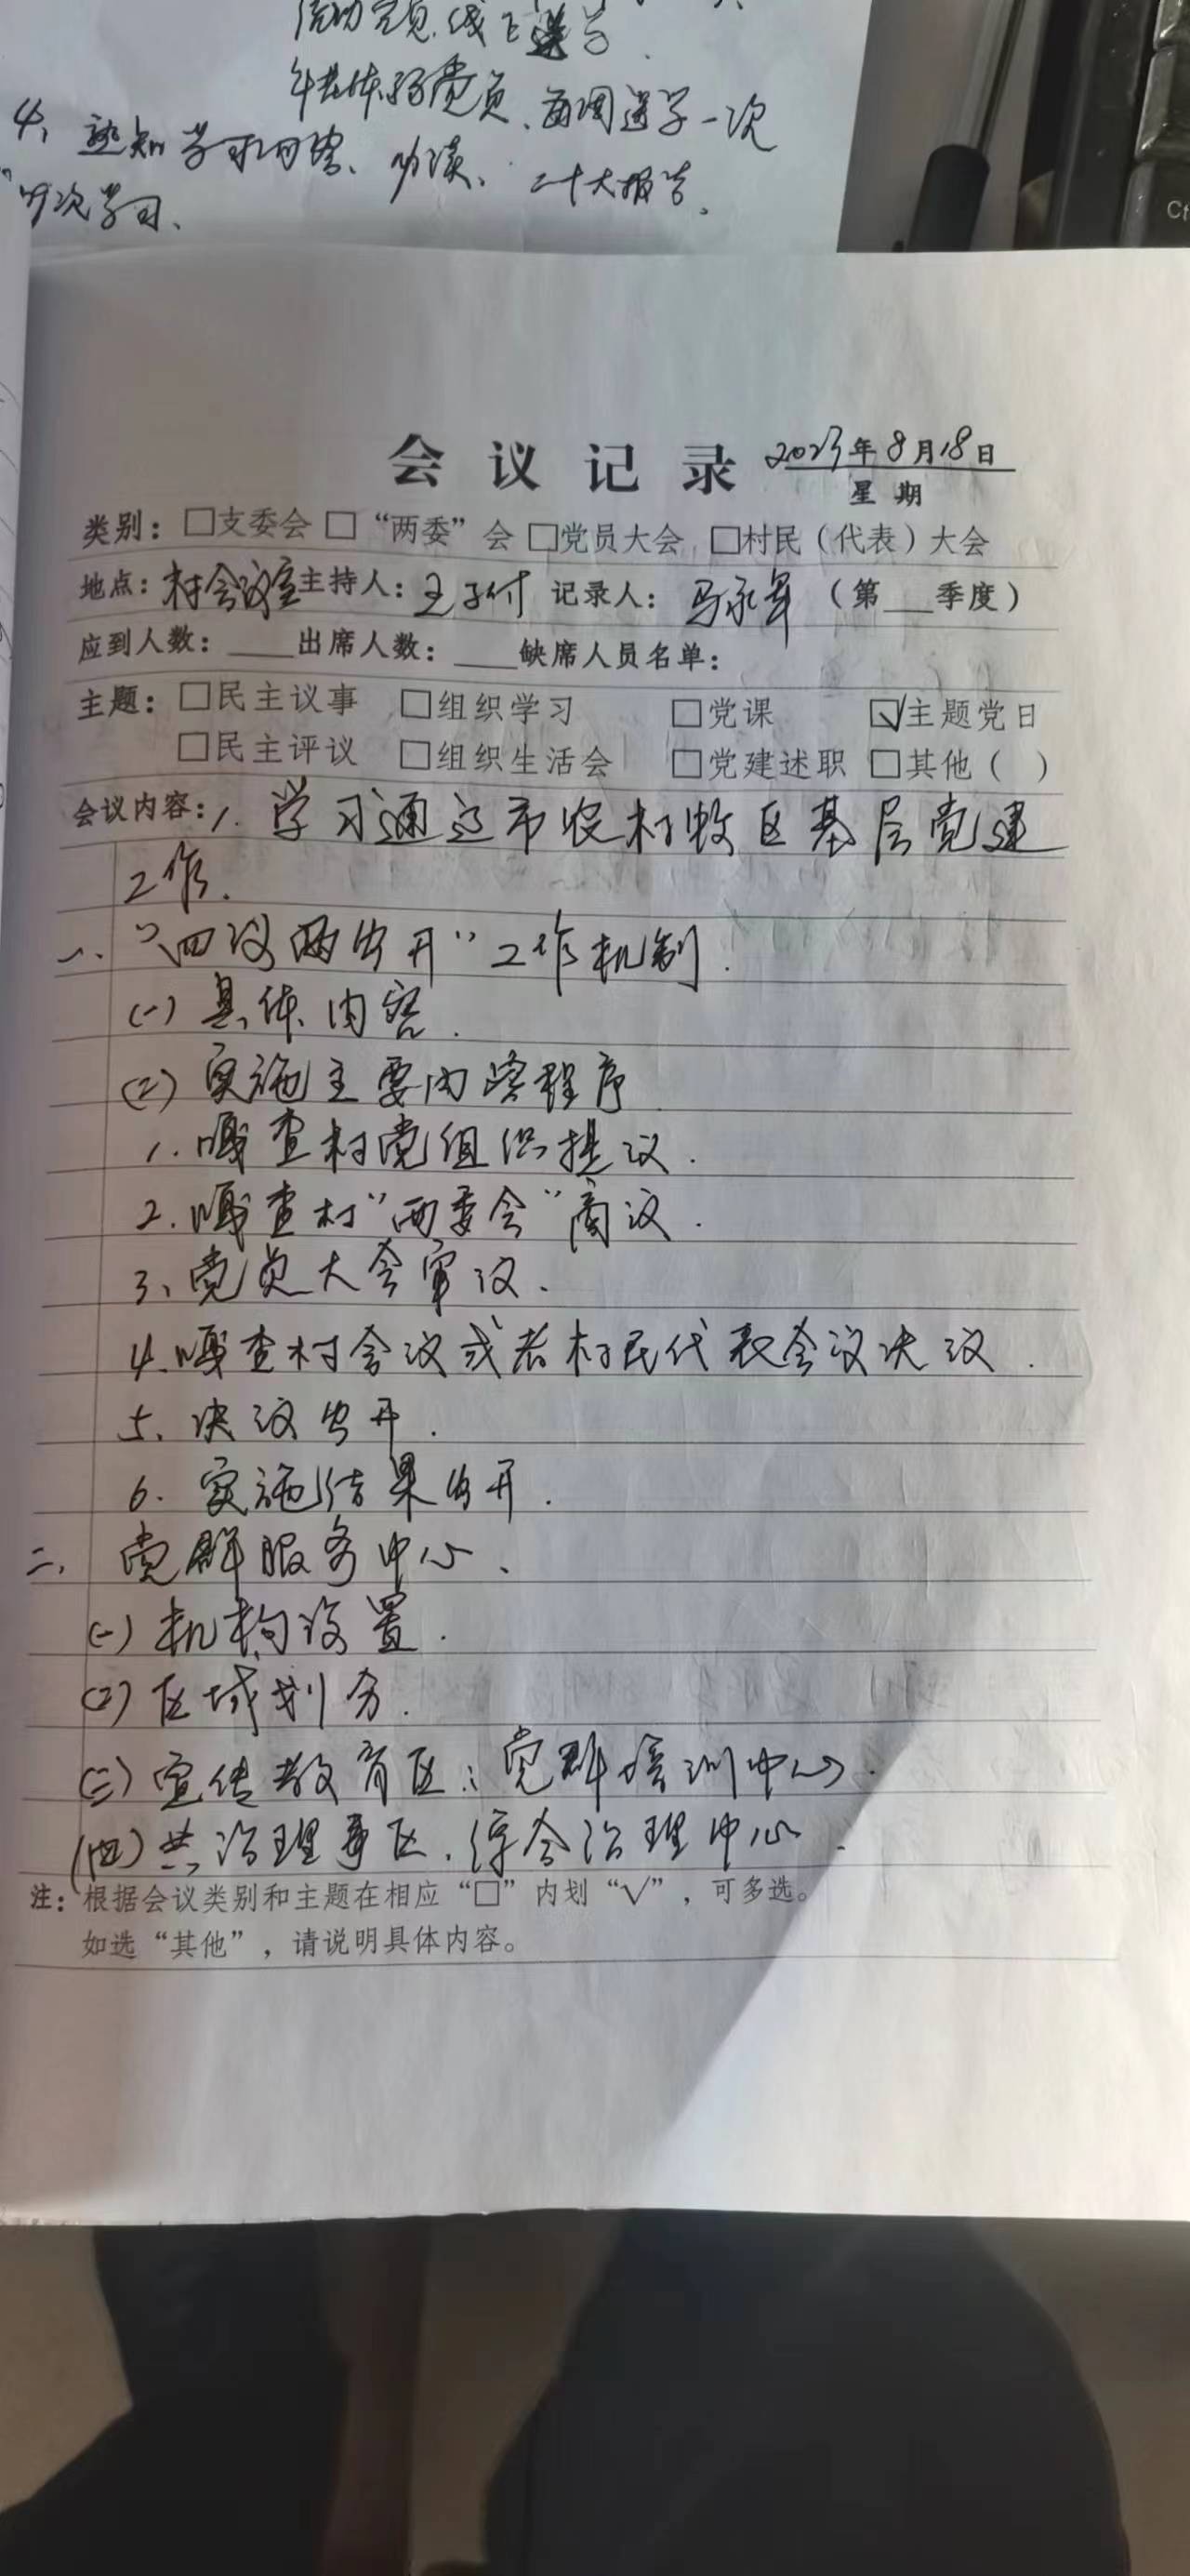 流动党员、线上送学
年老体弱党员、每周送学一次
4、熟知学习内容、必读、二十大报告、
次学习、
Ct
会议记录 2023年8月18日
星期
类别：□支委会 □“两委”会 □党员大会 □村民（代表）大会
地点：村会议室 主持人：王子付 记录人：马永军 （第 季度）
应到人数： 出席人数： 缺席人员名单：
主题：□民主议事 □组织学习 □党课 ☑主题党日
□民主评议 □组织生活会 □党建述职 □其他（ ）
会议内容：1. 学习通辽市农村牧区基层党建
工作.
一、“四议两公开”工作机制.
(一) 具体内容.
(二) 实施主要内容程序
1. 嘎查村党组织提议.
2. 嘎查村“两委会”商议.
3、党员大会审议.
4. 嘎查村会议或者村民代表会议决议.
5、决议公开.
6. 实施结果公开.
二、党群服务中心、
(一) 机构设置.
(二) 区域划分.
(三) 宣传教育区：党群培训中心.
(四) 共治理事区、综合治理中心.
注：根据会议类别和主题在相应“□”内划“√”，可多选。
如选“其他”，请说明具体内容。